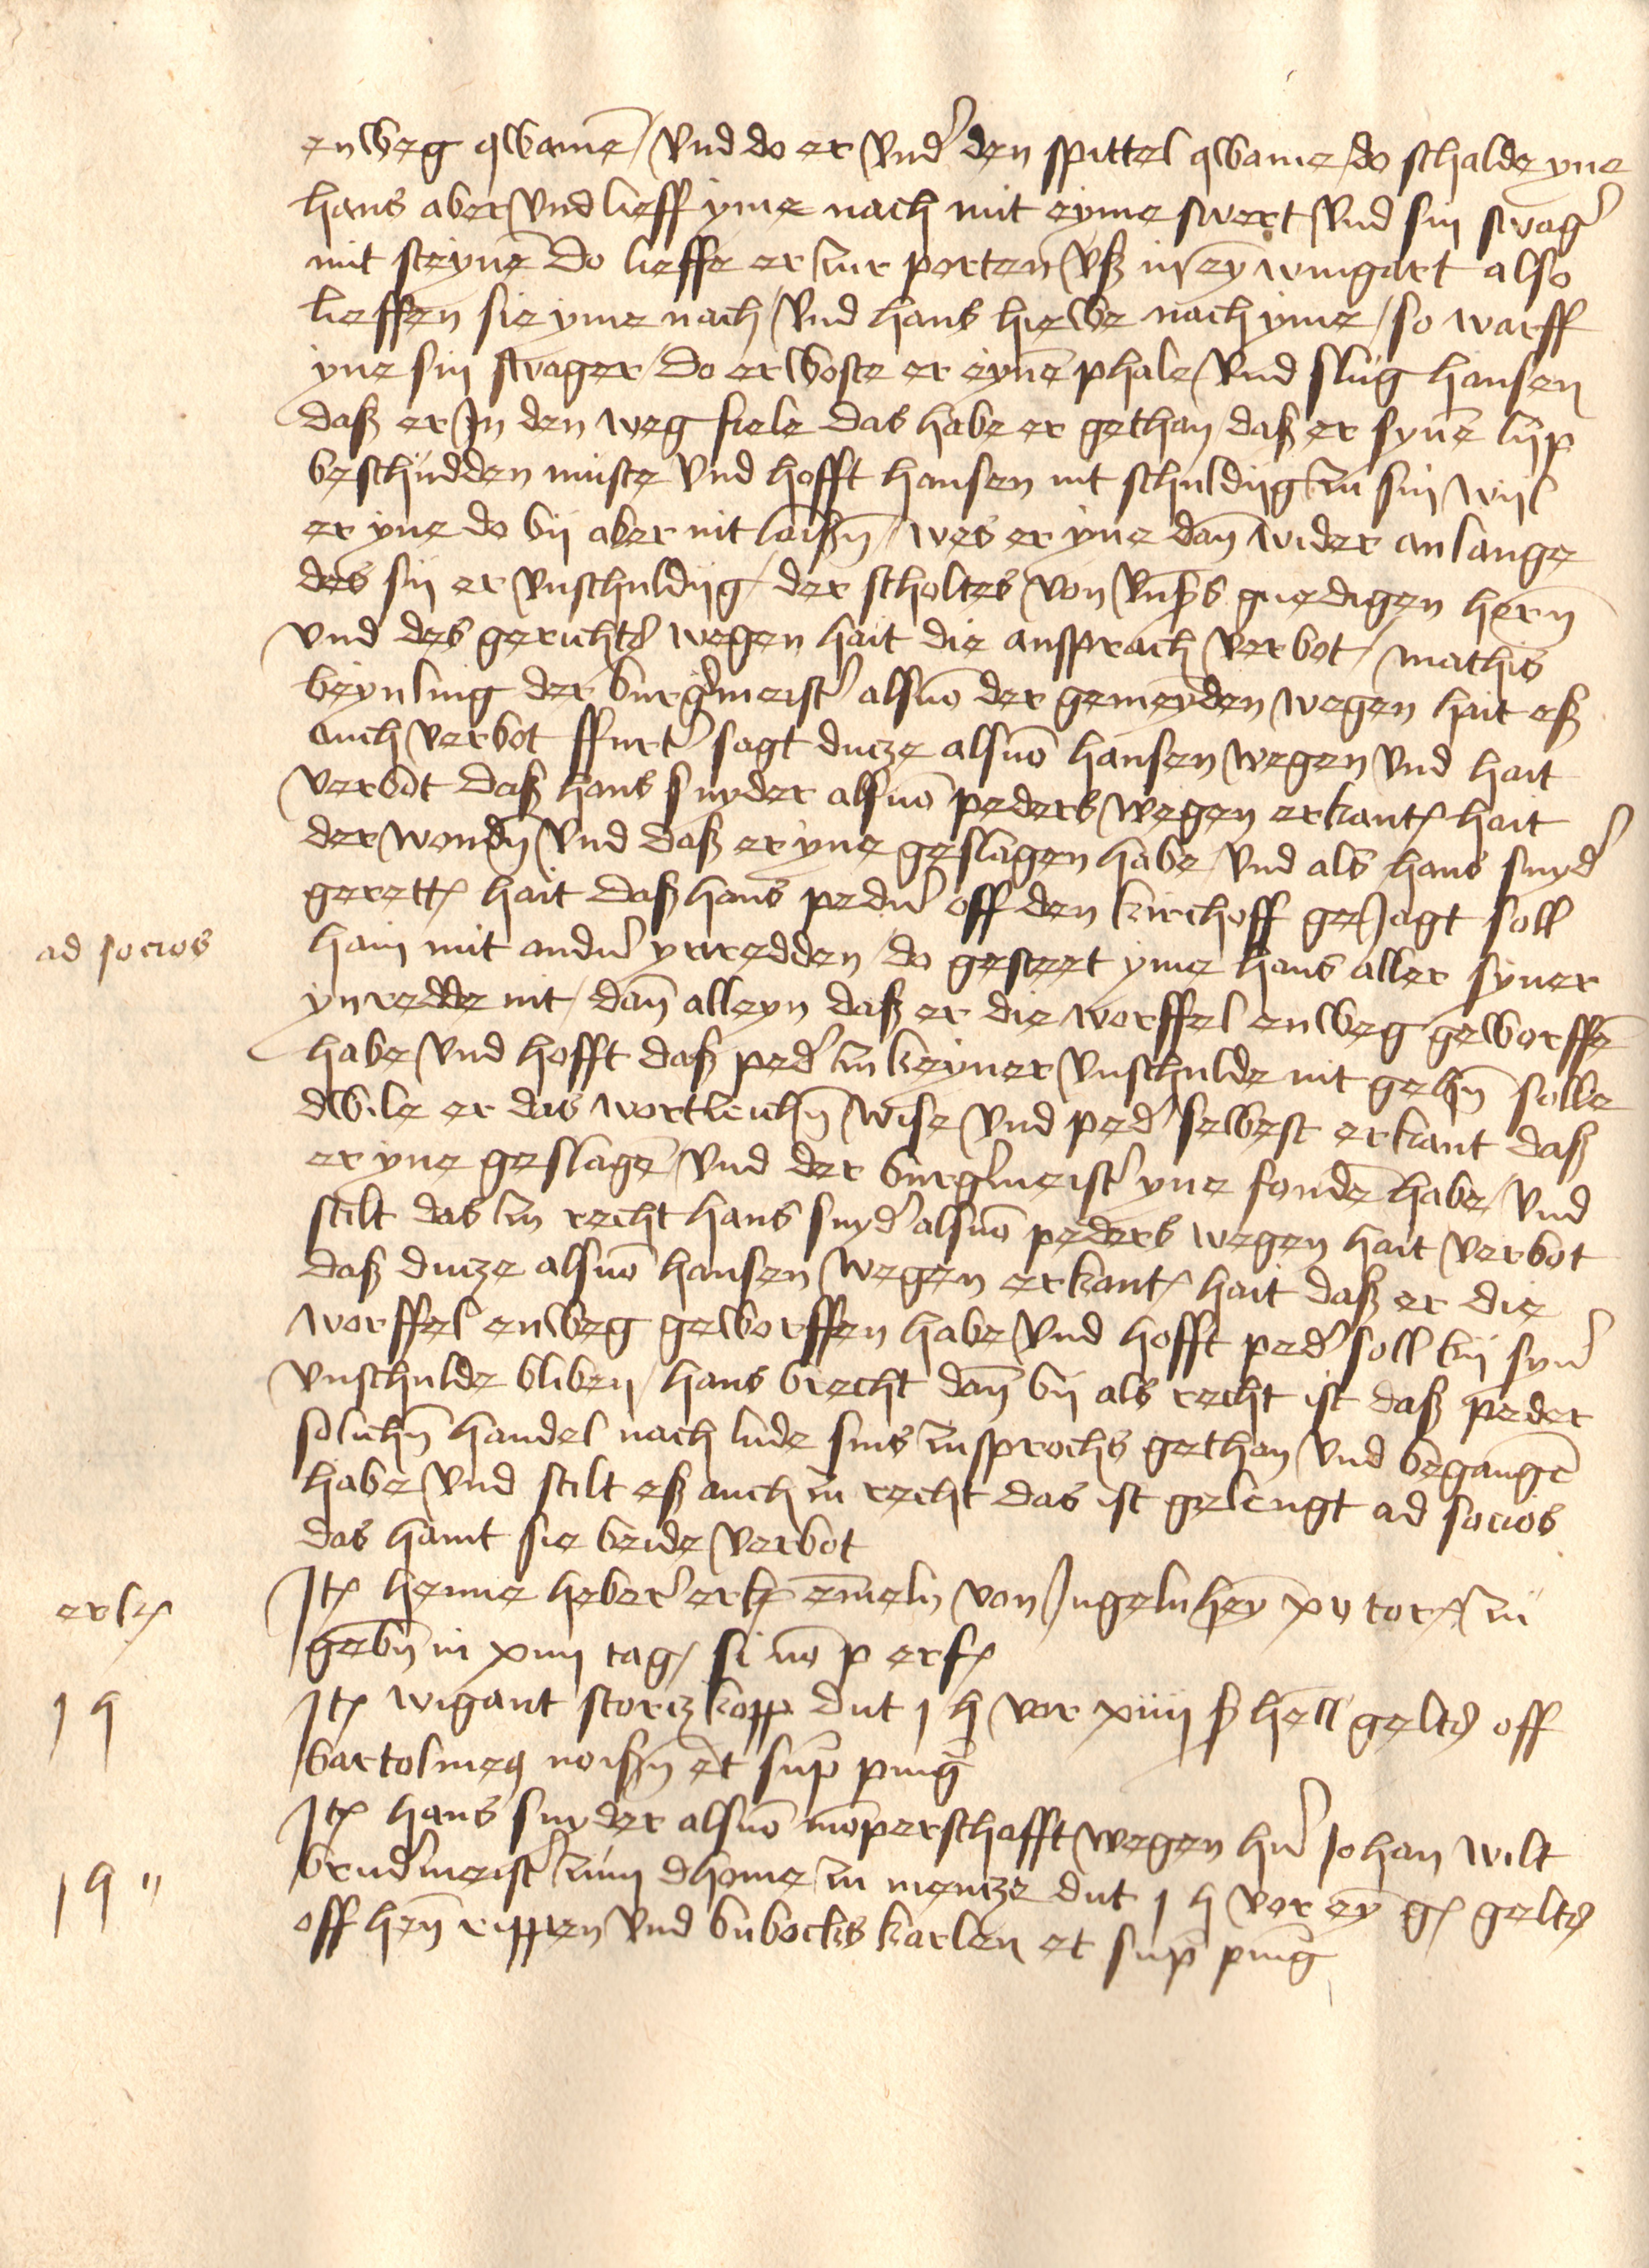 enweg qwamē / vnd do er vnd' den spittel qwame / do schalde yne
hans aber vnd lieff yme nach mit eyme swert vnd sin swag'
mit steynē do lieffe er zur porten vß in eȳ wingart also
lieffen sie yme nach / vnd hans hiewe nach yme / so warff
yne sin swager / do erwoste er eynē phale vnd slug hansen
daß er In den weg fiele das habe er gethan daß er synē lijp
beschudden muste vnd hofft hansen nit schuldijg zu sin wijl
er yne do bij aber nit laißn̄ / wes er yne dan̄ wider anlange
des sij er vnschuldijg / der scholtes von vnß's gnedigen hern̄
vnd des gerichts wegen hait die ansprach verbot / mathis
beynling der burg'meist' alsuō der gemeynden wegen hait eß
auch verbot ffurt' sagt ducze alsuō hansen wegen vnd hait
verbot daß hans snyder alsuō peders wegen erkant hait
der wondn̄ vnd daß er yne geslagen habe / vnd als hans snyd'
gerett hait daß hans ped'n off den kirchoff geJagt soll
ad socios
hain mit and'n ynredden / do gesteet yme hans aller syner
ynredde nit / dan̄ alleyn daß er die worffel enweg geworffē
habe vnd hofft daß ped' zu keyner vnschulde nit gehn̄ solle
dwile er das wortzeichn̄ wise vnd ped' selbest erkant daß
er yne geslagē / vnd der burg'meist' yne fondē habe / vnd
stilt das zu recht hans snyd' alsuō peders wegen hait verbot
daß ducze alsuō hansen wegen erkant hait daß er die
worffel enweg geworffen habe vnd hofft ped' soll bij syn'
vnschulde bliben / hans brecht dan̄ bij als recht ist daß peder
solichn̄ handel nach lude sins zusprochs gethan vnd begangē
habe vnd stilt eß auch zu recht das ist gelengt ad socios
das haint sie beide verbot
erk̄
Itē henne heber' erk̄ em̄eln von Ingelnheȳ xv tor zu
gebn̄ in xiiij tag / si nō p erf
1 h
Itē wigant storczkopp dut 1 h vor xiiij ß hell' gelts off
bartolmeꝯ noißn̄ et sup̄ pīnḡ
Itē hans snyder alsuō mōperschafft wegen h'n Johan wilt
1 h "
brud'meist' zum dhome zu mencze dut 1 h vor eȳ g gelts
off hen̄ rippen vnd bubocks karlen et sup̄ pinḡ